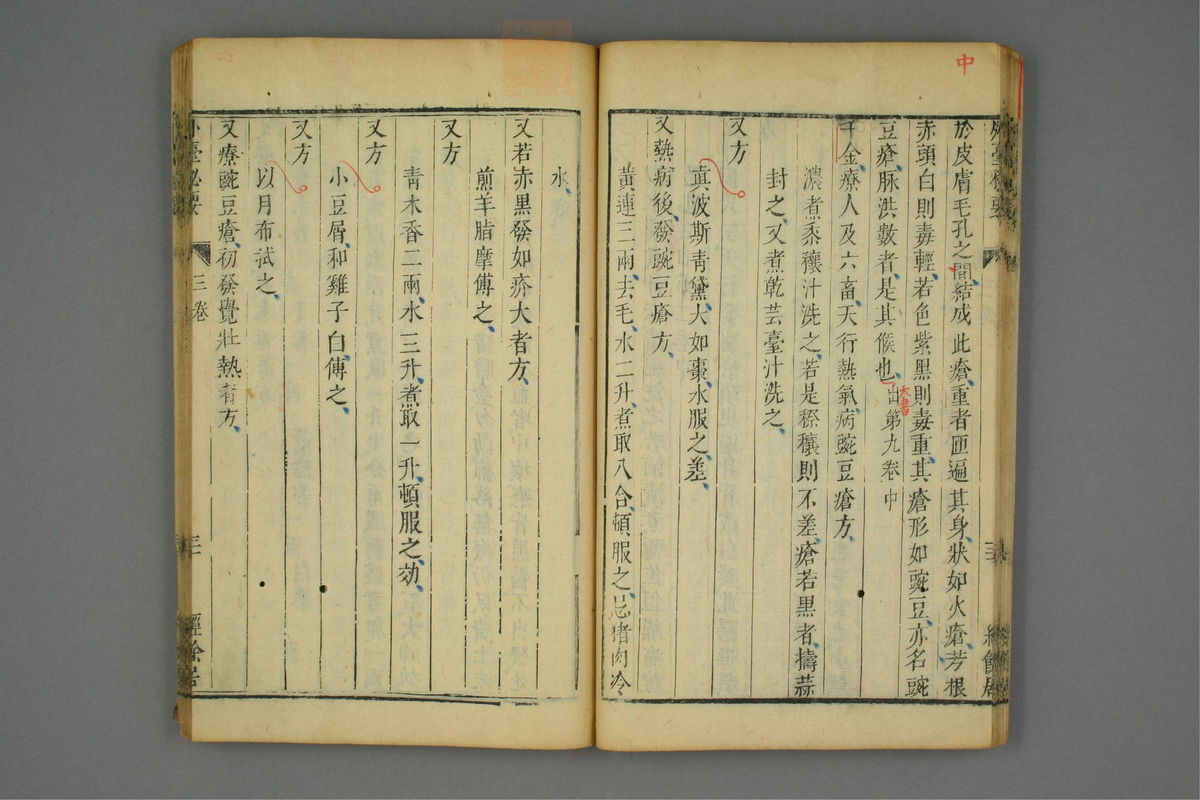 中
外臺秘要
於皮膚毛孔之間結成此瘡重者匝遍其身狀如火瘡若根
赤頭白則毒輕若色紫黑則毒重其瘡形如豌豆亦名豌
豆瘡脉洪數者是其候也出第九卷中
大書
千金療人及六畜天行熱氣病豌豆瘡方
濃煮黍穰汁洗之若是穄穰則不差瘡若黑者擣蒜
封之又煮乾芸臺汁洗之
又方
真波斯青黛大如棗水服之差
又熱病後發豌豆瘡方
黄連三兩去毛水二升煮取八合頓服之忌猪肉冷
水
又若赤黑發如疥大者方
煎羊脂摩傅之
又方
青木香二兩水三升煮取一升頓服之効
又方
小豆屑和雞子白傅之
又方
以月布拭之
又療豌豆瘡初發覺壯熱者方
外臺秘要 三卷 三 經餘居